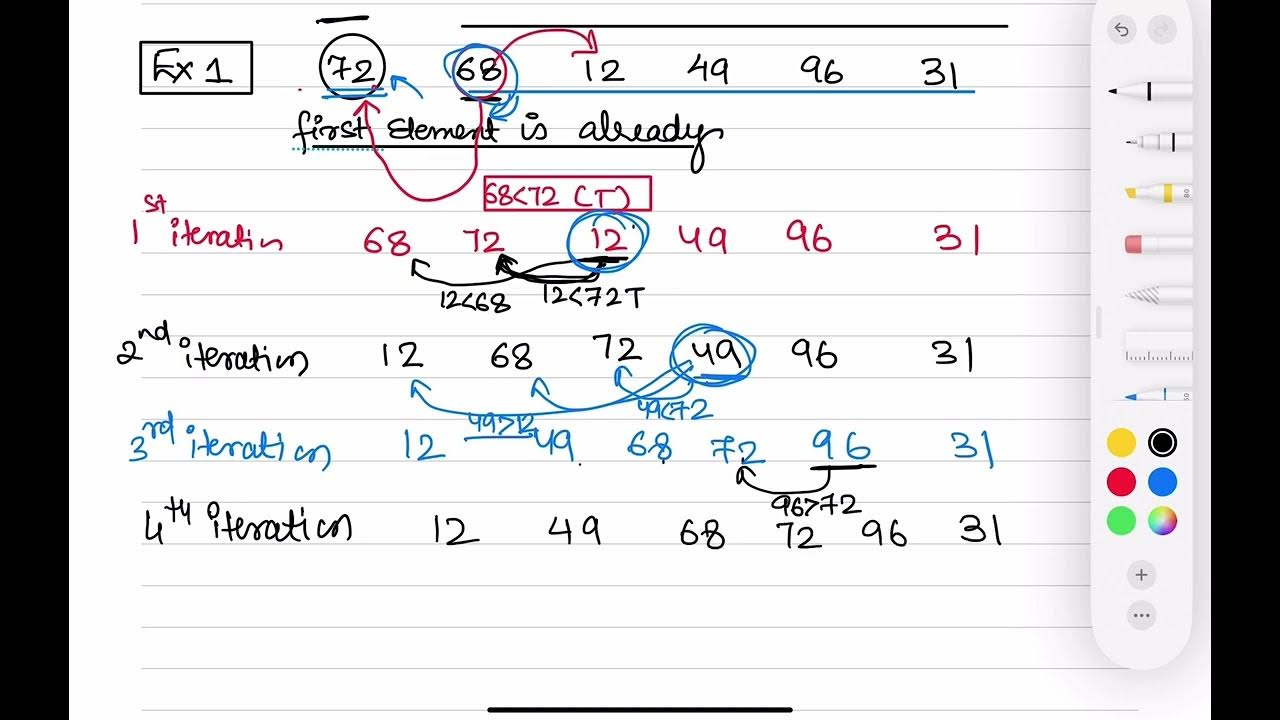 Ex 1 72 68 12 49 96 31
first element is already
68<72 (T)
1st iteratin 68 72 12 49 96 31
12<68 12<72T
2nd iteration 12 68 72 49 96 31
49>12 49<72
3rd iteration 12 49 68 72 96 31
96>72
4th iteration 12 49 68 72 96 31